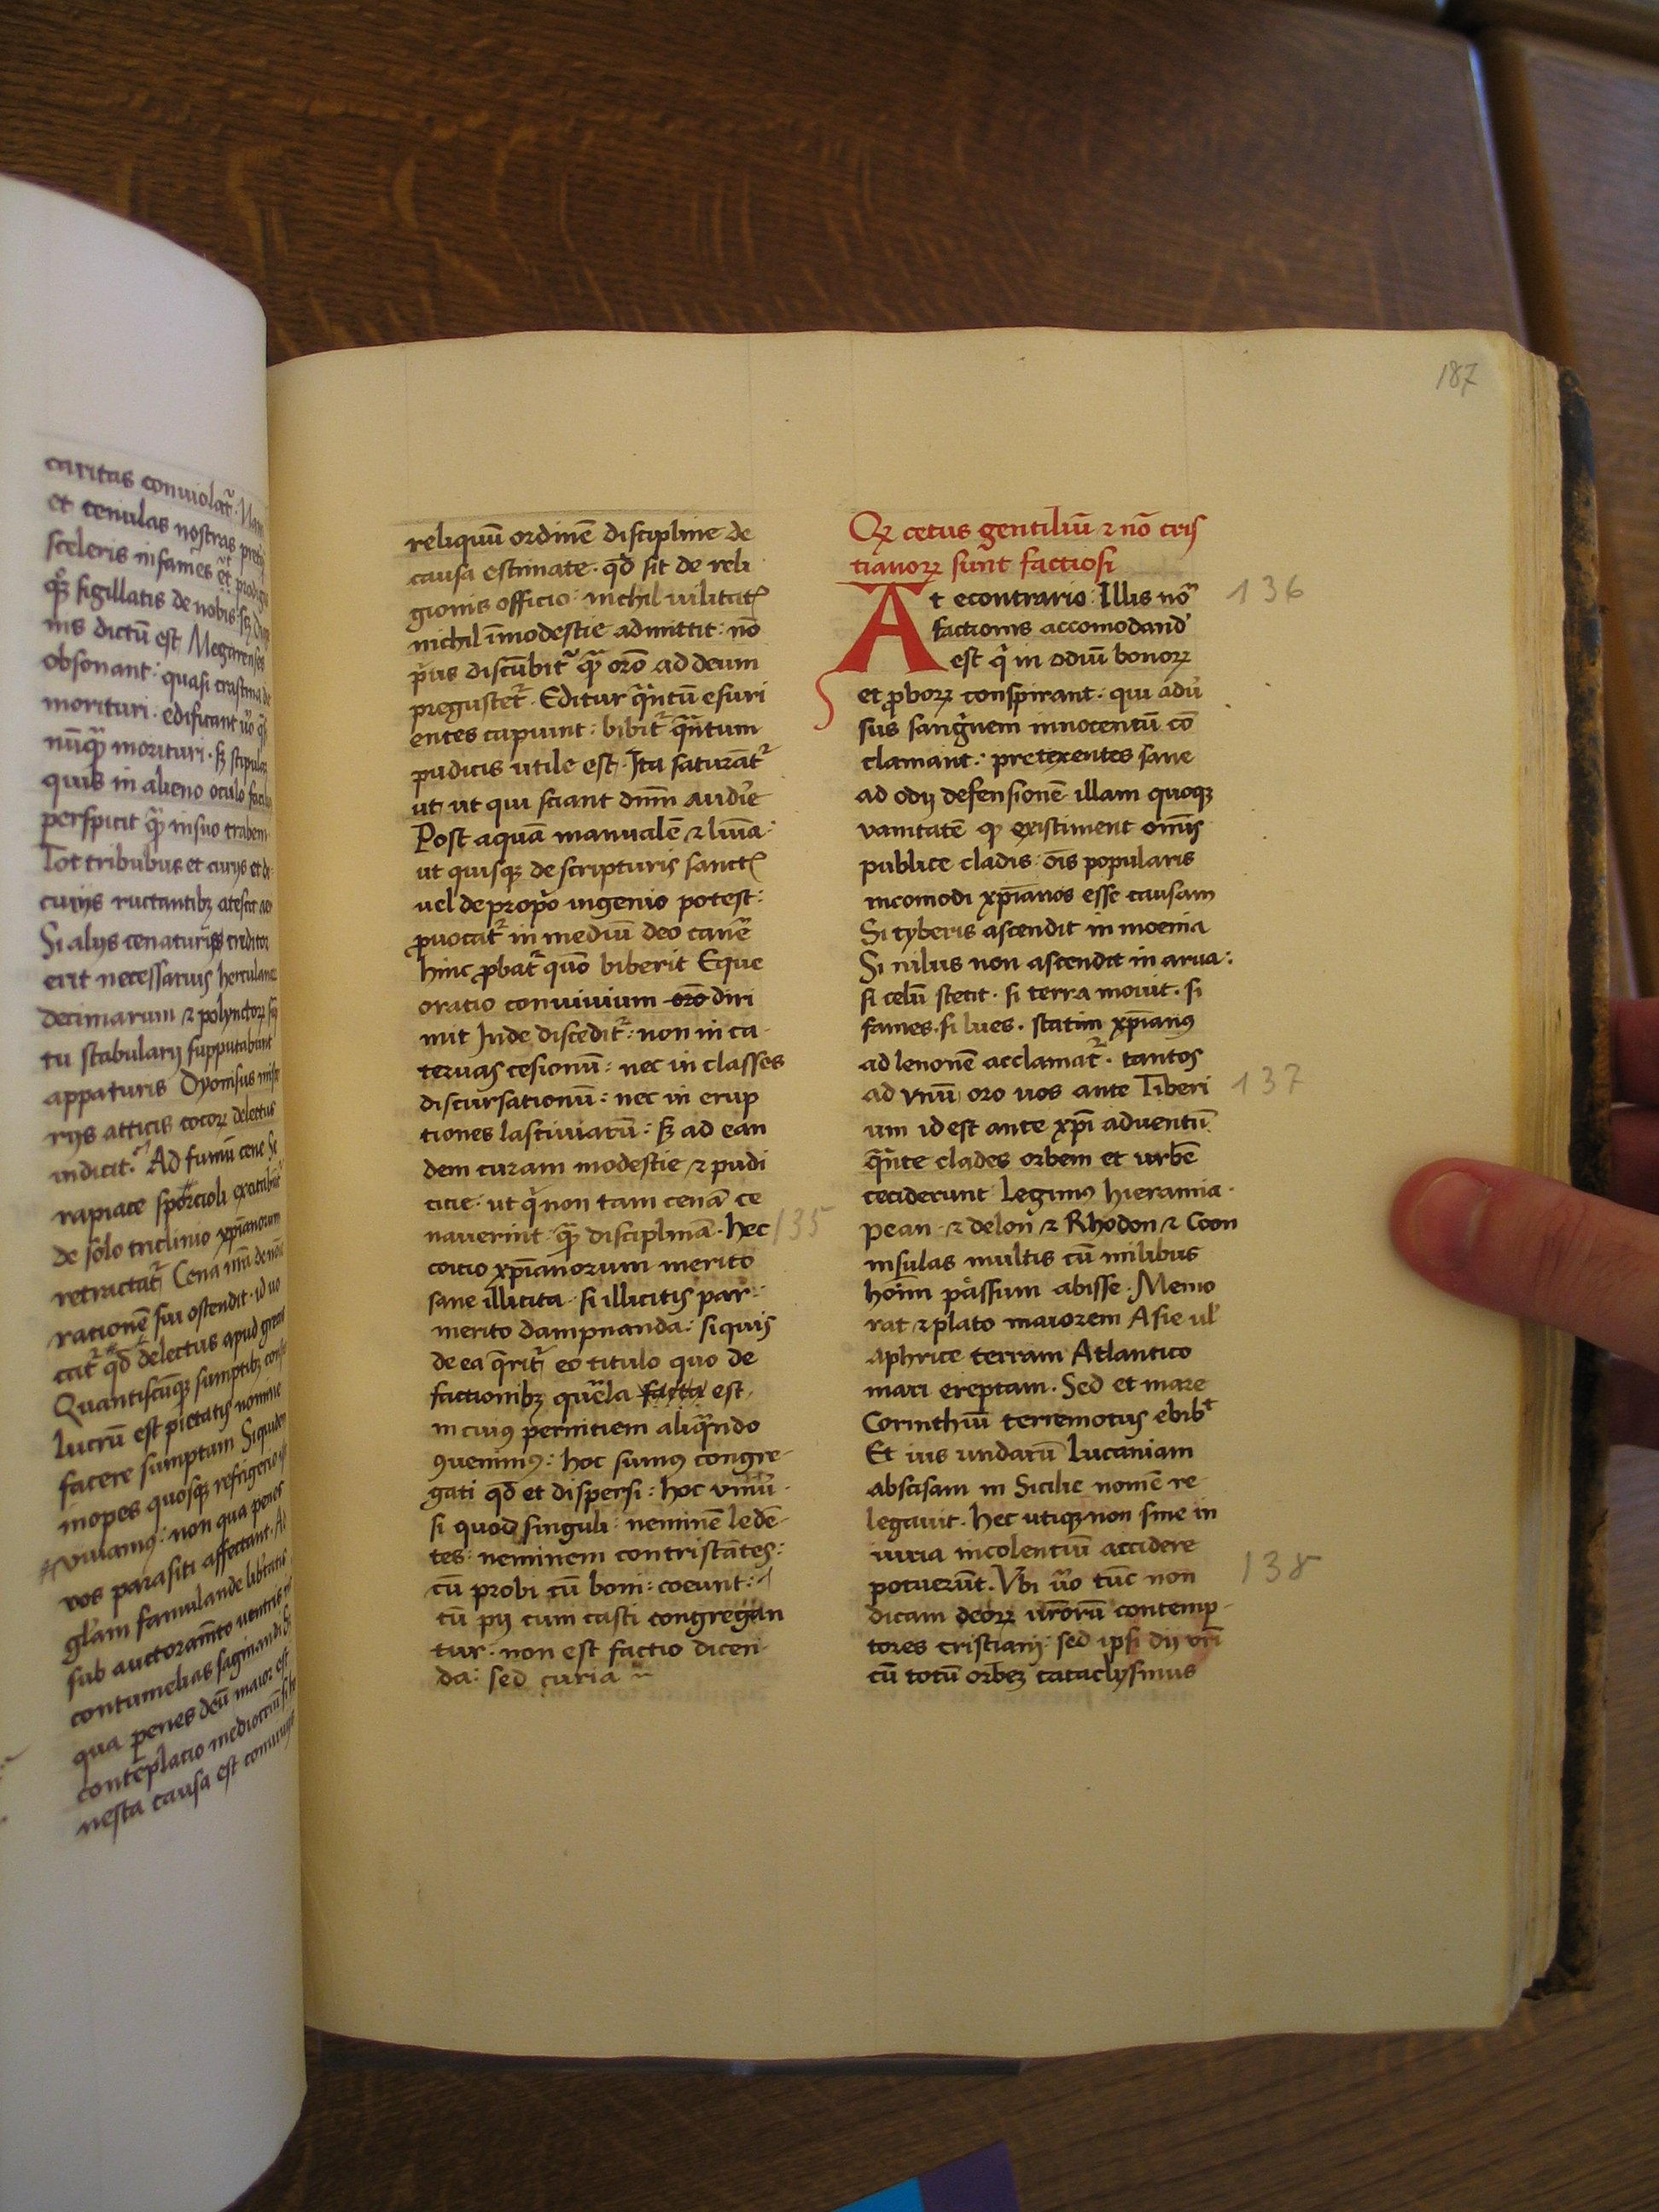 caritas conuiolat᷑. Nam
et cenulas nostras preter
sceleris infames ēt prodig
nis dictū est. Megarenses
obsonant: quasi crastina de
morituri: edificant ūo
nūq̄ morituri. sꝫ stipulaꝫ
quis in alieno oculo facilius
perspicit q̄ in suo trabem
Tot tribubus et curijs et de
curijs ructantibꝫ atescit aer
Si alijs cenaturijs creditor
erit necessarius herculanaꝝ
decimarum ⁊ polynctoꝝ
tu stabularij supputabunt
appaturijs Dyonisus
rijs atticis cocoꝝ delectus
indicit. Ad fumū cene Se
rapiace sporcioli excitabūt᷑
de solo triclinio xp̄ianorum
retractat᷑. Cena nr̄a de noīe
rationē sui ostendit. id uo
cat᷑ qd̄ delectus apud grecos
Quantiscūqꝫ sumptibꝫ
Lucrū est pietatis nomine
facere sumptum Siquidem
inopes quosqꝫ refrigerio
vuamꝰ: non qua penes
vos parasiti affectant. Ad
gl̄am famulande lib̄tatis
sub auctoramēto uentris
contumelias saginandi Sꝫ
qua penes deū maior est
contēplatio mediocriū
nesta causa est conuiuij
187
reliquū ordinē discipline de
causa estimate. qd̄ sit de reli
gionis officio: nichil uilitat᷑
nichil īmodestie admittit: nō
p̄us discūbit᷑ q̄ orō ad deum
pregustet᷑. Editur q̄ntū esuri
entes capiunt: bibit᷑ q̄ntum
pudicis utile est. Ita saturāt᷑
ut, ut qui sciant dn̄m audīe
Post aquā manualē ⁊ luīa:
ut quisqꝫ de scripturis sanct᷑
uel de prop̄o ingenio potest:
ꝓuocat᷑ in mediū deo canē
hinc ꝓbat᷑ quō biberit Eque
oratio conuiuium orō diri
mit Inde discedit᷑: non in ca
teruas cesionū: nec in classes
discursationū: nec in erup
tiones lasciuiarū: sꝫ ad ean
dem curam modestie ⁊ pudi
citie: ut q̄ non tam cenā ce
nauerint q̄ disciplinā. hec 135
coitio xp̄ianorum merito
sane illicita. si illicitis par:
merito dampnanda: si quis
de ea q̄rit᷑ eo titulo quo de
factionibꝫ querela facta est.
in cuiꝰ pernitiem aliq̄ndo
ꝯuenimꝰ: hoc sumꝰ congre-
gati qd̄ et dispersi: hoc vniū.
si quod singuli: neminē ledē-
tes: neminem contristātes:
cū probi cū boni: coeunt:
cū pij cum casti congregan
tur: non est factio dicen
da: sed curia
Qꝫ cetus gentiliū ⁊ nō cris
tianoꝝ sunt factiosi
At econtrario: Illis nō 136
factionis accomodand᷒
est q̄ in odiū bonoꝝ
et ꝓboꝝ conspirant: qui adū
sus sanḡnem innocentū cō
clamant: pretexentes sane
ad odij defensionē illam quoqꝫ
vanitatē qꝫ existiment om̄is
publice cladis: ois popularis
incomodi xp̄ianos esse causam
Si tyberis ascendit in moenia
Si nilus non ascendit in arua:
si celū stetit. si terra mouit. si
fames. si lues. statim xp̄ianꝰ
ad lenonē acclamat᷑. tantos
ad vnū, oro uos ante Tiberi 137
um id est ante xp̄i aduentū
q̄nte clades orbem et urbē
ceciderunt Legimꝰ hierannia.
pean. ⁊ delon ⁊ Rhodon ⁊ Coon
insulas multis cū milibus
hoīm passum abisse. Memo
rat ⁊ plato maiorem Asie ul̄
aphrice terram Atlantico
mari ereptam. Sed et mare
Corinthiū terremotus ebib᷑
Et uis undarū Lucaniam
abscisam in Sicilie nomē re
legauit. hec utiqꝫ non sine in
iuria incolentiū accidere
potuerūt. Vbi ūo tūc non 138
dicam deoꝝ uroꝝ contemp-
tores cristiani: sed ipsi dij vr̄i
cū totū orbeꝫ cataclysmus